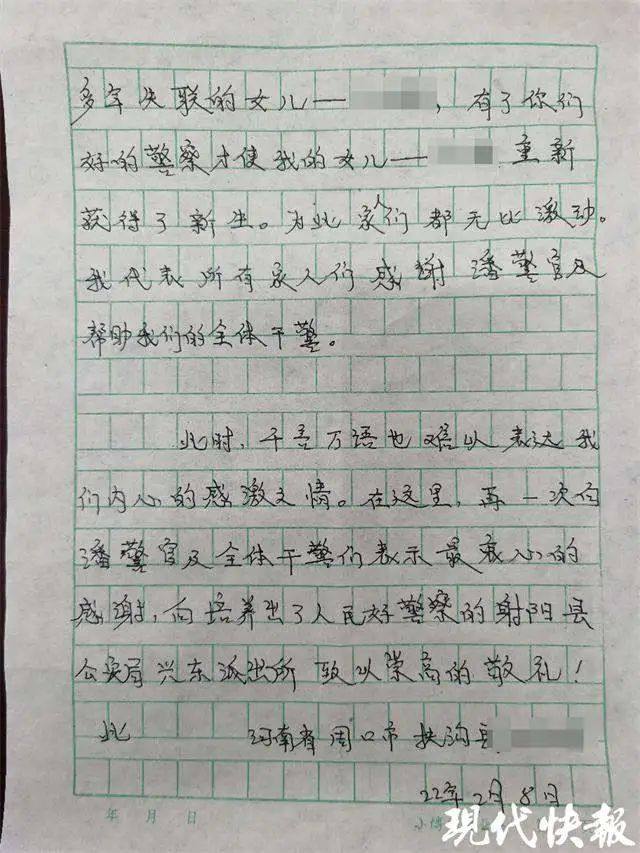 多年失联的女儿——，有了你们
好的警察才使我的女儿——重新
获得了新生。为此家人们都无比激动。
我代表所有家人们感谢潘警官及
帮助我们的全体干警。
此时，千言万语也难以表达我
们内心的感激之情。在这里，再一次向
潘警官及全体干警们表示最衷心的
感谢，向培养出了人民好警察的射阳县
公安局兴东派出所致以崇高的敬礼！
此 河南省周口市扶沟县
22年2月8日
年 月 日
现代快报